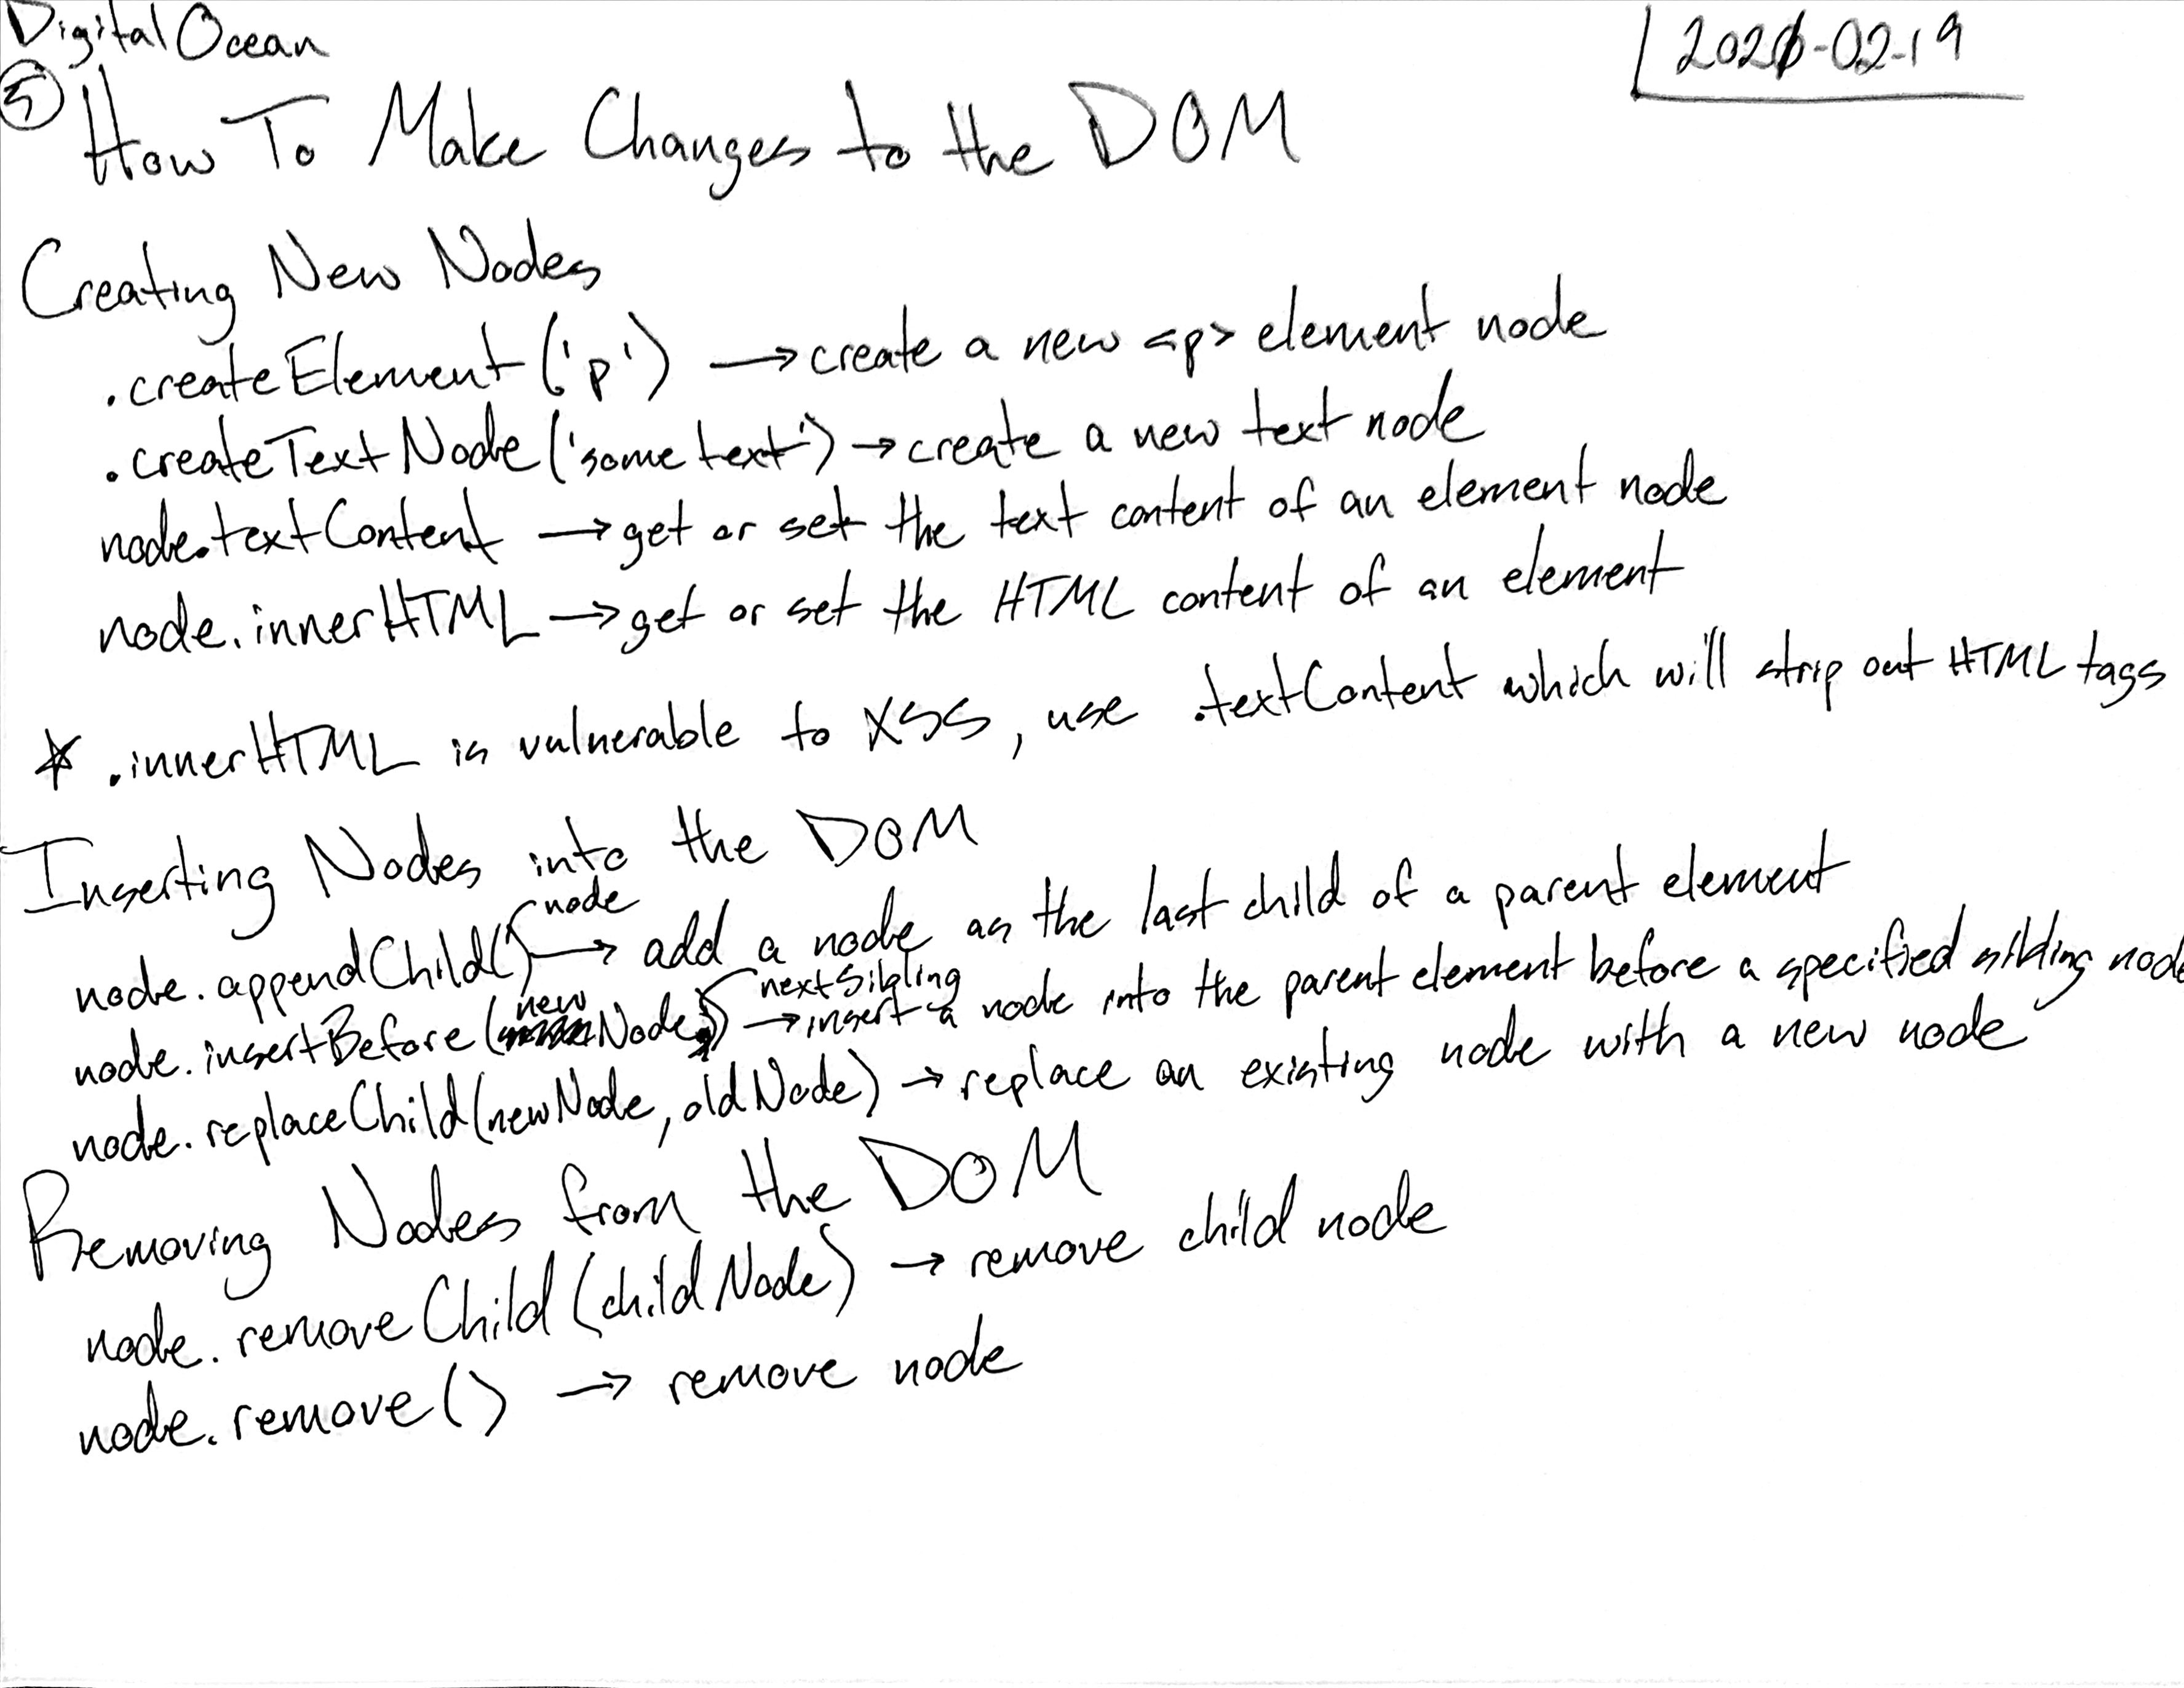 DigitalOcean
2021-02-19
5 How To Make Changes to the DOM
Creating New Nodes
.createElement('p') → create a new <p> element node
.createTextNode('some text') → create a new text node
node.textContent → get or set the text content of an element node
node.innerHTML → get or set the HTML content of an element
* .innerHTML is vulnerable to XSS, use .textContent which will strip out HTML tags
Inserting Nodes into the DOM
node.appendChild(node) → add a node as the last child of a parent element
node.insertBefore(newNode, nextSibling) → insert a node into the parent element before a specified sibling node
node.replaceChild(newNode, oldNode) → replace an existing node with a new node
Removing Nodes from the DOM
node.removeChild(childNode) → remove child node
node.remove() → remove node